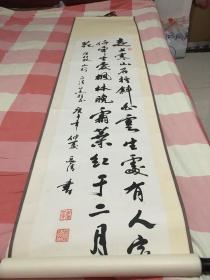 遠上寒山石徑斜白雲生處有人家
停車坐愛楓林晚霜葉紅于二月
花 年仲夏 書